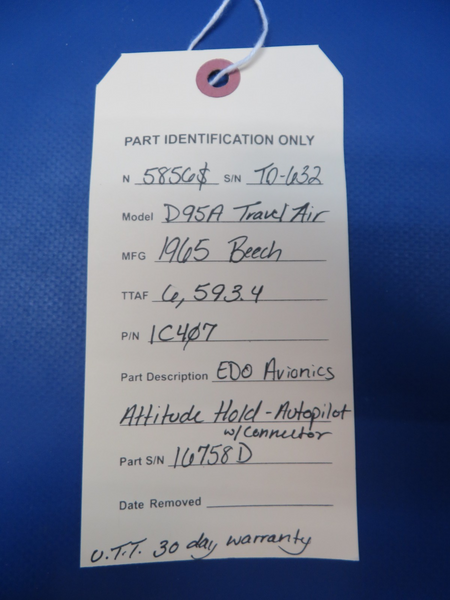 PART IDENTIFICATION ONLY
N 5856S S/N TD-632
Model D95A Travel Air
MFG 1965 Beech
TTAF 6,593.4
P/N 1C407
Part Description EDO Avionics
Attitude Hold - Autopilot
w/connector
Part S/N 16758D
Date Removed
U.T.T. 30 day warranty